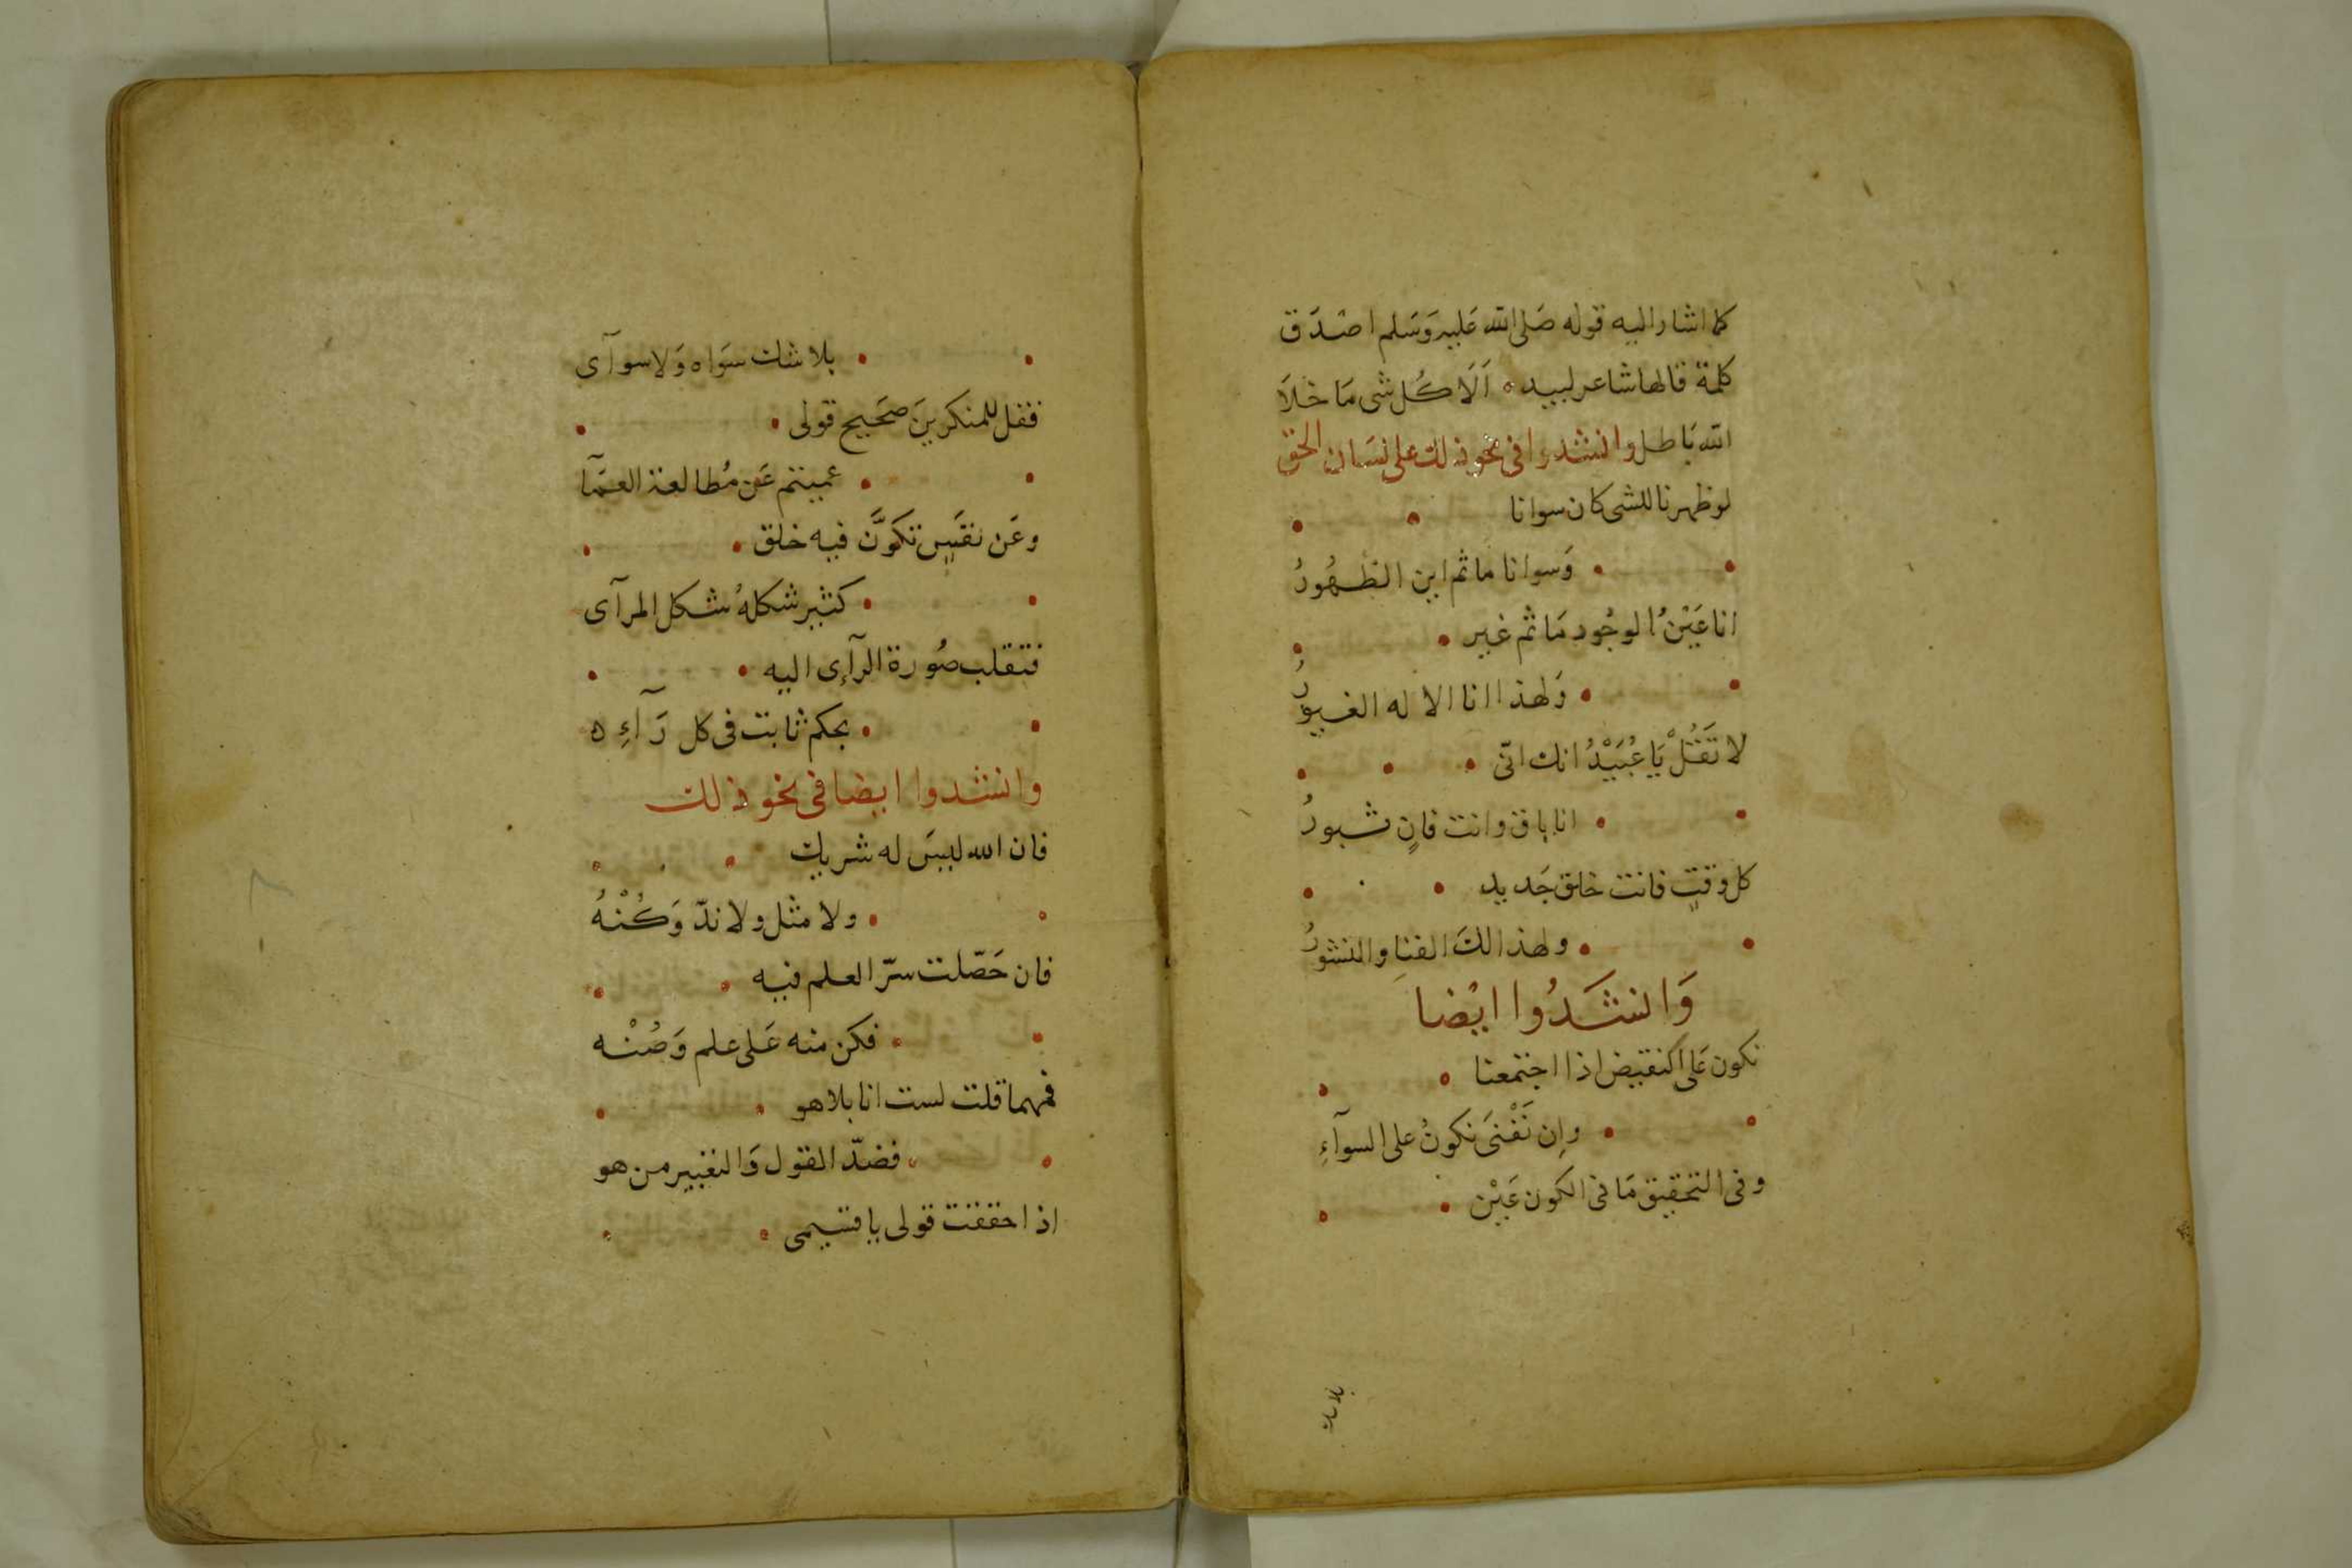 كما اشار اليه قوله صَلى الله عَليه وَسَلم اصْدَق
كلمة قالها شاعر لبيد ۰ اَلَا كُل شى مَا خلَا
الله بَاطل وانشدوا فى نحو ذلك على لسَان الحق
لو ظهرنا للشى كان سوانا
وَسوانا ما ثم اين الظهُورُ
انا عَيْنُ الوجُود مَا ثم غير
وَلهذا انا الا له الغيورُ
لا تَقُلْ يَا عُبَيْدُ انك انّى
انا باق وانت فانٍ ثبورُ
كل وقتٍ فانت خلق جَديد
ولهذا لكَ الفنا والنشورُ
وَانشَدُوا ايْضا
نكون عَلى النقيض اذا اجتمعنا
وإِن نَفْنَى نكونُ على السوآءِ
وفى التحقيق مَا فى الكون عَيْن
بلا شك
بلا شك سوَاه وَلا سوآى
فقل للمنكرينَ صحَيح قولى
عميتم عَن مُطالعة العمَآ
وعَن نفَسٍ تكوَّنَ فيه خلق
كثير شكلهُ شكل المرآى
فتقلب صُورة الرآءِى اليه
بحكم ثابت فى كل رَآءِ ه
وانشدوا ايضا فى نحو ذلك
فان الله ليسَ له شريك
ولا مثل ولا ندّ وَكُنْهُ
فان حَصّلت سرّ العلم فيه
فكن منه عَلى علم وَصُنْه
فمهما قلت لست انا بلا هو
فضدّ القول وَالتغيير من هو
اذا حققت قولى يا قسيمى